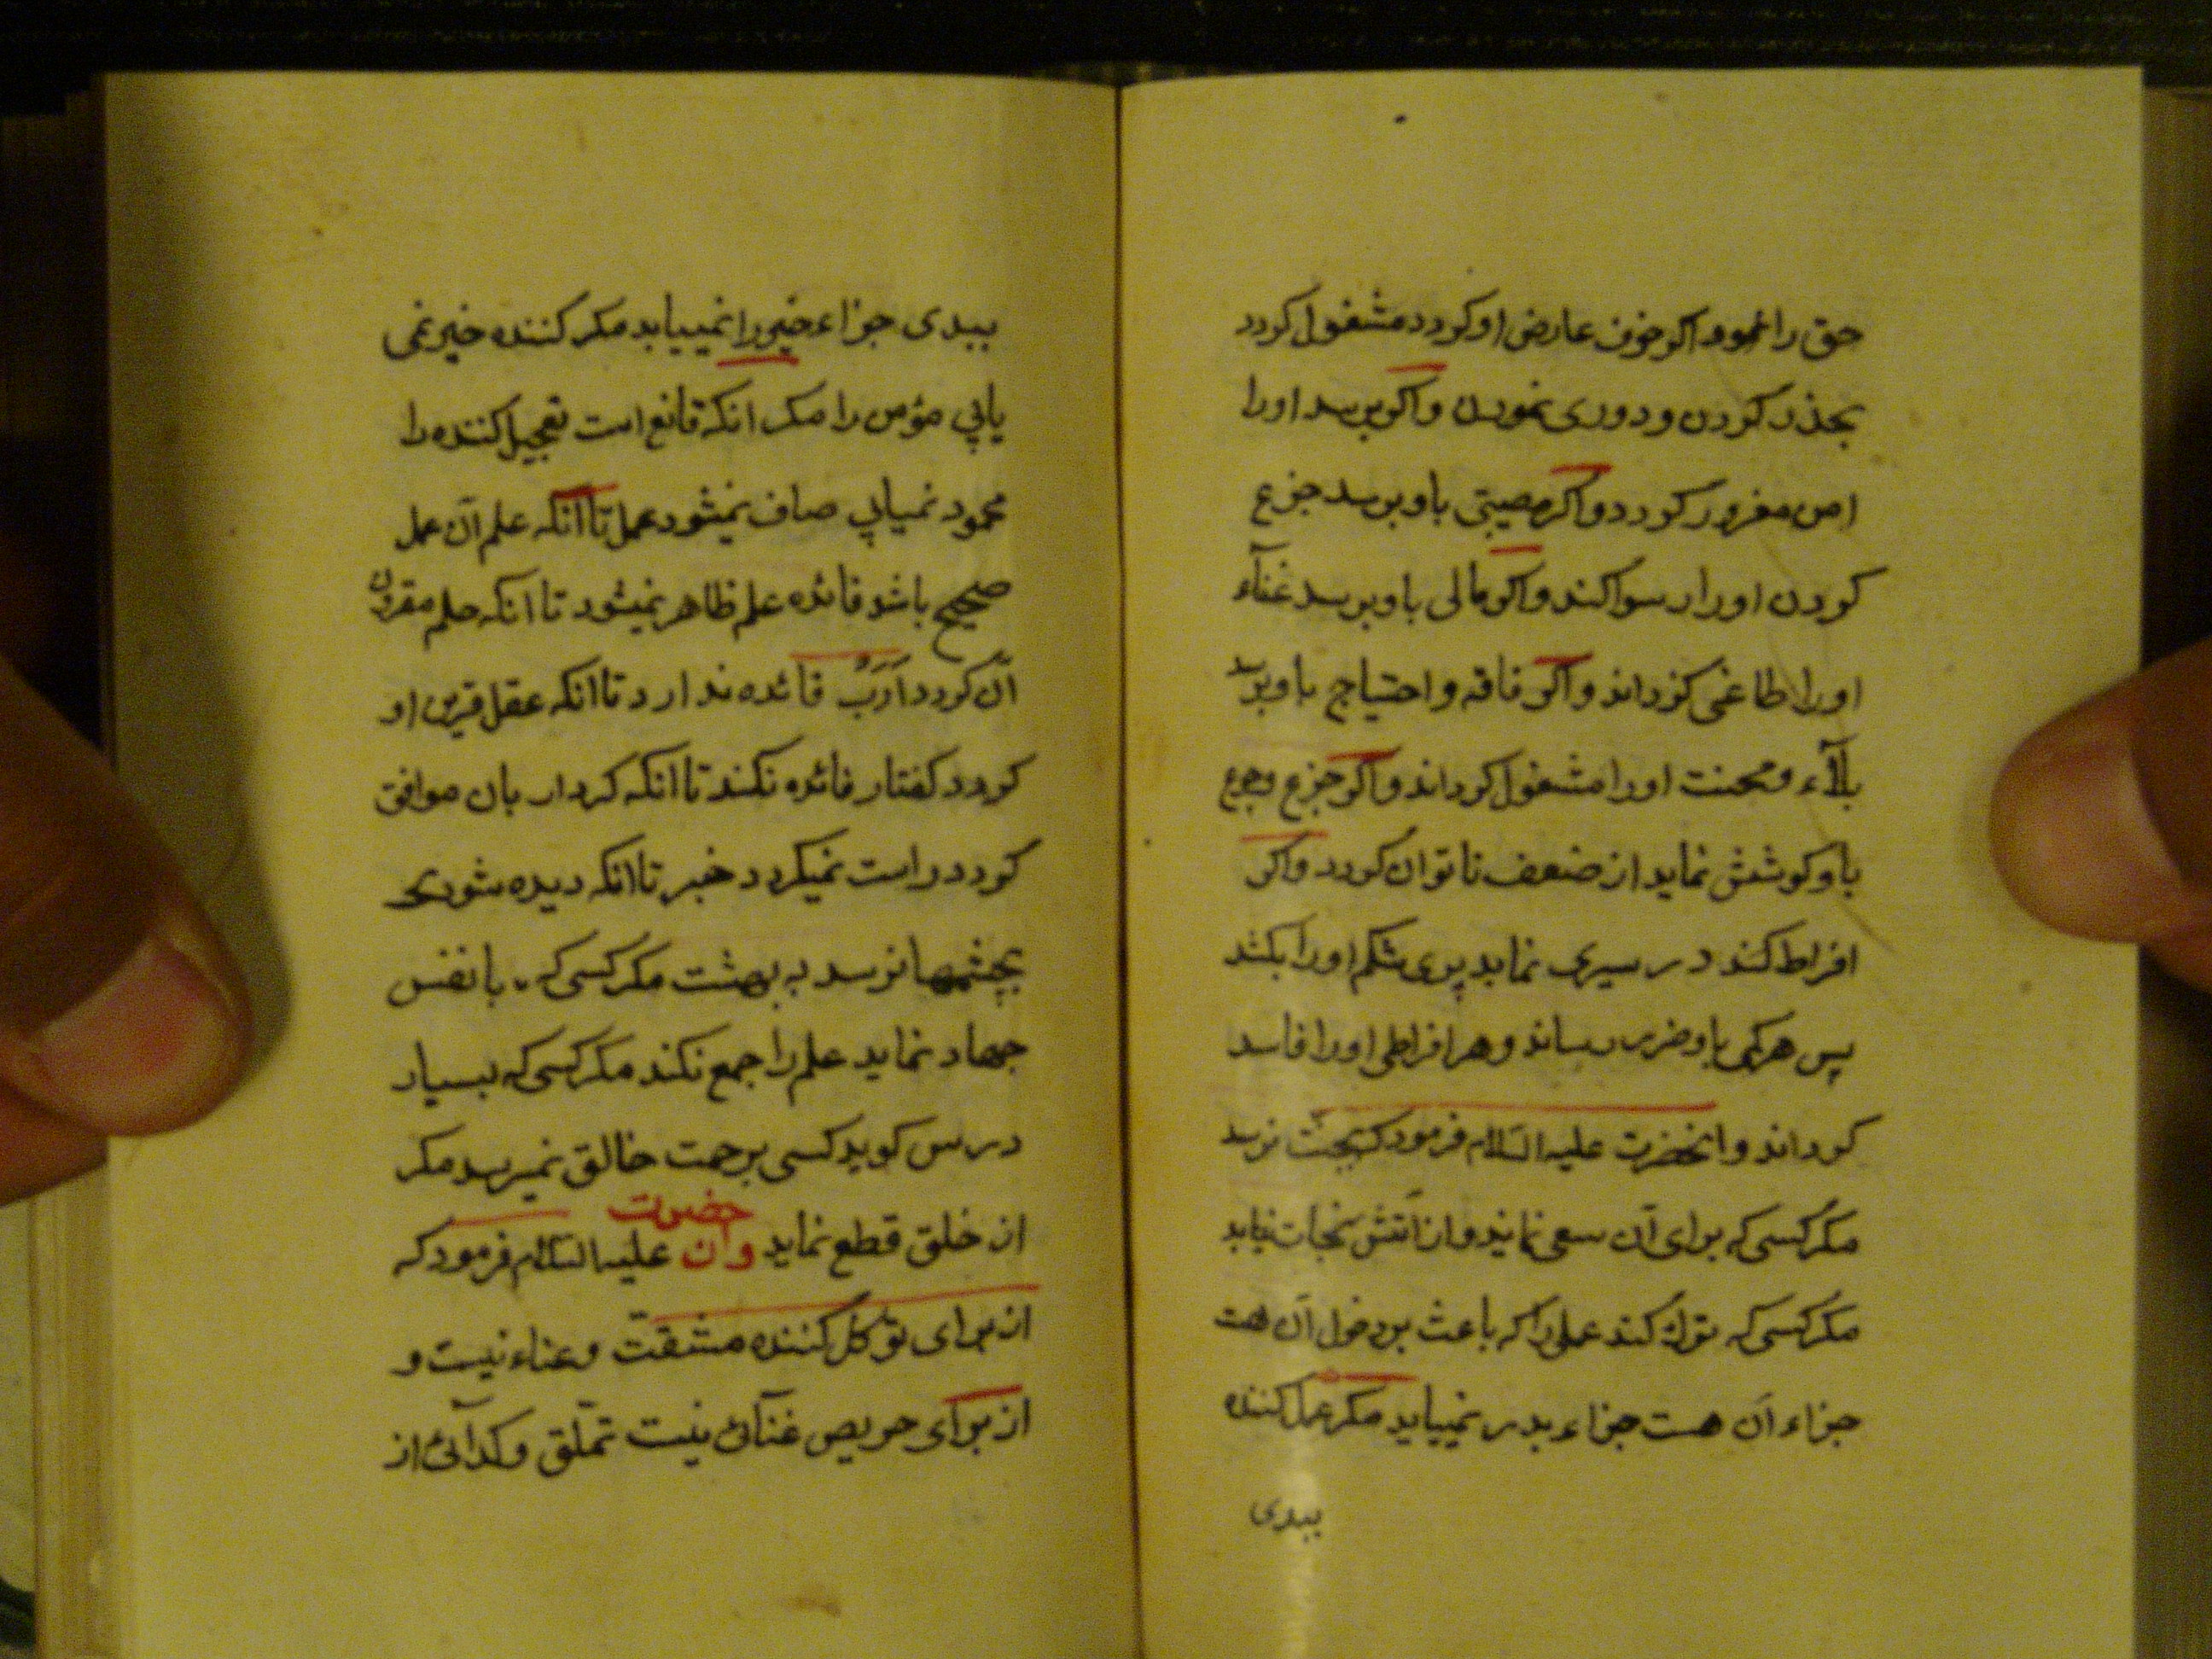 حق را نمود اگر خوف عارض او کردد مشغول کردد
بحذر کردن و دوری نمودن و اگر برسد او را
امن مغرور کردد و اگر مصیبتی باو برسد جزع
کردن او را رسوا کند و اگر مالی باو برسد غنآء
او را طاغی کرداند و اگر فاقه و احتیاج باو برسد
بلآء و محنت او را مشغول کرداند و اگر جزع وجوع
باو کوشش نماید از ضعف ناتوان کردد و اگر
افراط کند در سیری نماید پری شکم او را بکشد
پس هر کمی باو ضرر رساند و هر افراطی او را فاسد
کرداند و انحضرت علیه السّلام فرمود که بجنّت نرسد
مکر کسی که برای آن سعی نماید و از آتش نجات نیابد
مکر کسی که ترک کند عملی را که باعث بر دخول آن هست
جزاء آن هست جزاء بد را نمییابد مکر عمل کننده
ببدی
ببدی جزاء خیر را نمییابد مکر کننده خیر نمی
یابی مؤمن را مکر انکه قانع است تعجیل کننده را
محمود نمیابی صاف نمیشود عمل تا آنکه علم آن عمل
صحیح باشد فائده علم ظاهر نمیشود تا انکه حلم مقرون
آن کردد اَدَبْ فائده ندارد تا انکه عقل قرین او
کردد کفتار فائده نکند تا انکه کردار بان موافق
کردد راست نمیکردد خبر تا انکه دیده شود
بچشمها نرسد به بهشت مکر کسی که با نفس
جهاد نماید علم را جمع نکند مکر کسی که بسیار
درس کوید کسی برحمت خالق نمیرسد مکر
از خلق قطع نماید وان حضرت علیه السّلام فرمود که
از برای توکّل کننده مشقّت و عناء نیست و
از برای حریص غنآئ نیست تملّق و کدآئی از